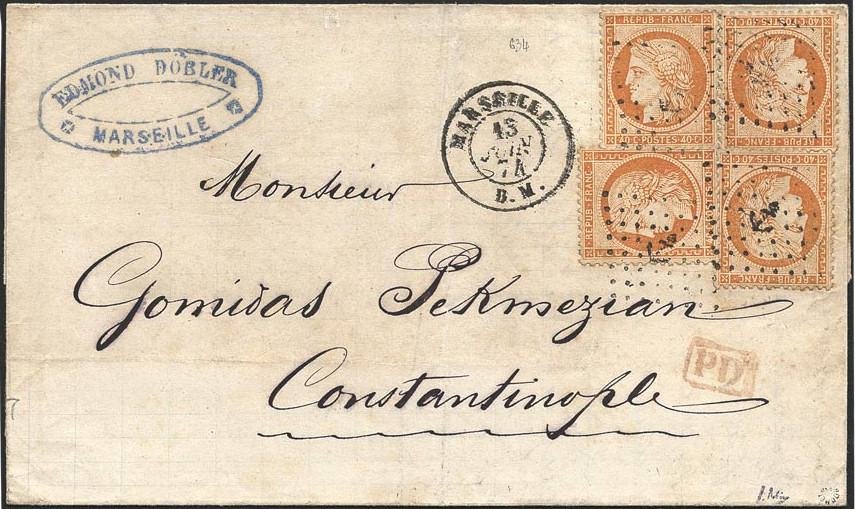 EDMOND DOBLER
MARSEILLE
634
MARSEILLE
13
JUIN
74
B.M.
REPUB·FRANC·
40·C·POSTES·40·C·
REPUB·FRANC·
40·C·POSTES·40·C·
REPUB·FRANC·
REPUB·FRANC·
40·C·POSTES·40·C·
Monsieur
Gomidas Pekmezian
Constantinople
PD